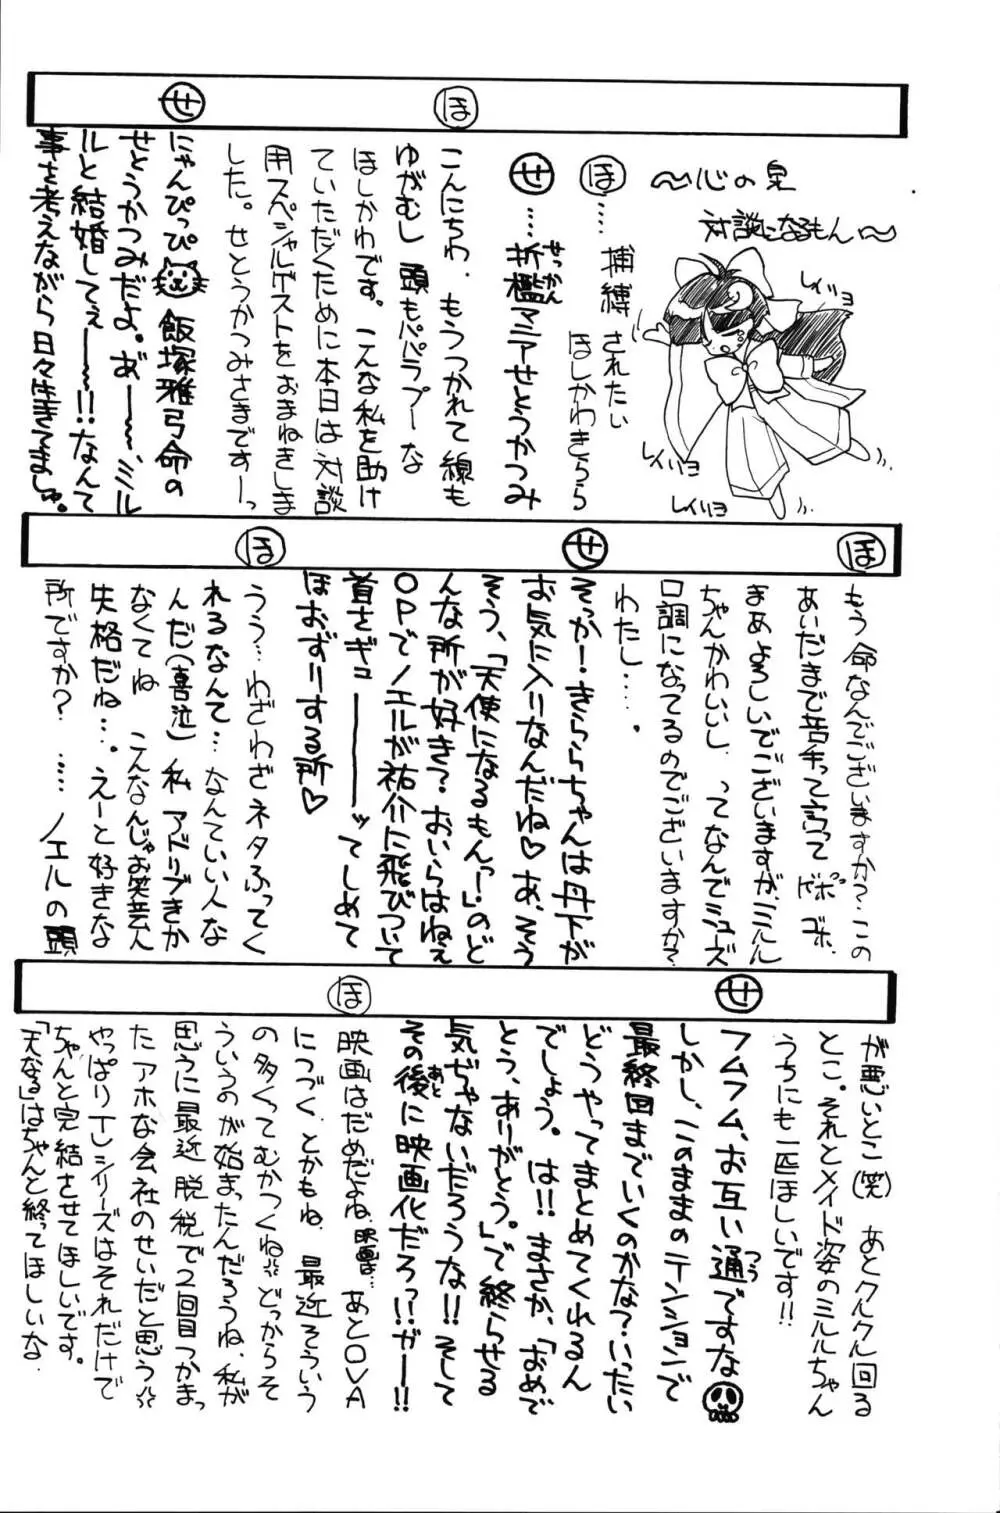 ～心の泉
対談になるもん～
ほ…捕縛されたい
ほしかわきらら
せ…折檻マニアせとうかつみ
せっかん
レイリィヨ
レイリィヨ
レイリィヨ
レイリィヨ
ほ
こんにちわ、もうつかれて線も
ゆがむし 頭もパパラプーな
ほしかわです。こんな私を助け
ていただくために本日は対談
用スペシャルゲストをおまねきしま
した。せとうかつみさきですーっ
せ
にゃんぴっぴ 飯塚雅弓命の
せとうかつみだよ。あ゛ー～、ミル
ルと結婚してぇー～ー!!なんて
事を考えながら日々生きてましゅ。
ほ
もう命なんでございますか？この
あいだまで苦手って言って ドボッ ゴホ、
まあよろしいでございますが、ミルル
ちゃんかわいいし、ってなんでミュズ
口調になってるのでございますか？
わたし…．
せ
そっかー・きららちゃんは丹下が
お気に入りなんだね♡あ、そう
そう、「天使になるもんっ！」のど
んな所が好き？おいらはねぇ
OPでノエルが祐介に飛びついて
首さギュ――――ッてしめて
ほおずりーする所♡
ほ
うう…わざわざネタふってく
れるなんて…なんていい人な
んだ（喜泣）私 アドリブきか
なくてね こんなんじゃお笑芸人
失格だね…。えーと好きな
所ですか？ ……ノエルの頭
が悪いとこ（笑）あとクルクル回る
とこ。それとメイド姿のミルルちゃん
うちにも一匹ほしいです!!
せ
フムフム、お互い通ですな
つう
しかし、このままのテンションで
最終回までいくのかな？いったい
どうやってまとめてくれるん
でしょう。は!!まさか、「おめで
とう、ありがとう。」で終らせる
気ぢゃないだろうな!!そして
その後に映画化だろっ!!ガーー!!
あと
ほ
映画はだめだよね、映画は…あとOVA
につづく、とかもね、最近そういう
の多くってむかつくね。どっからそ
ういうのが始まったんだろうね、私が
思うに最近 脱税で2回目つかまっ
たアホな会社のせいだと思う
やっぱりTVシリーズはそれだけで
ちゃんと完結させてほしいです。
「天なる」はちゃんと終ってほしいな．